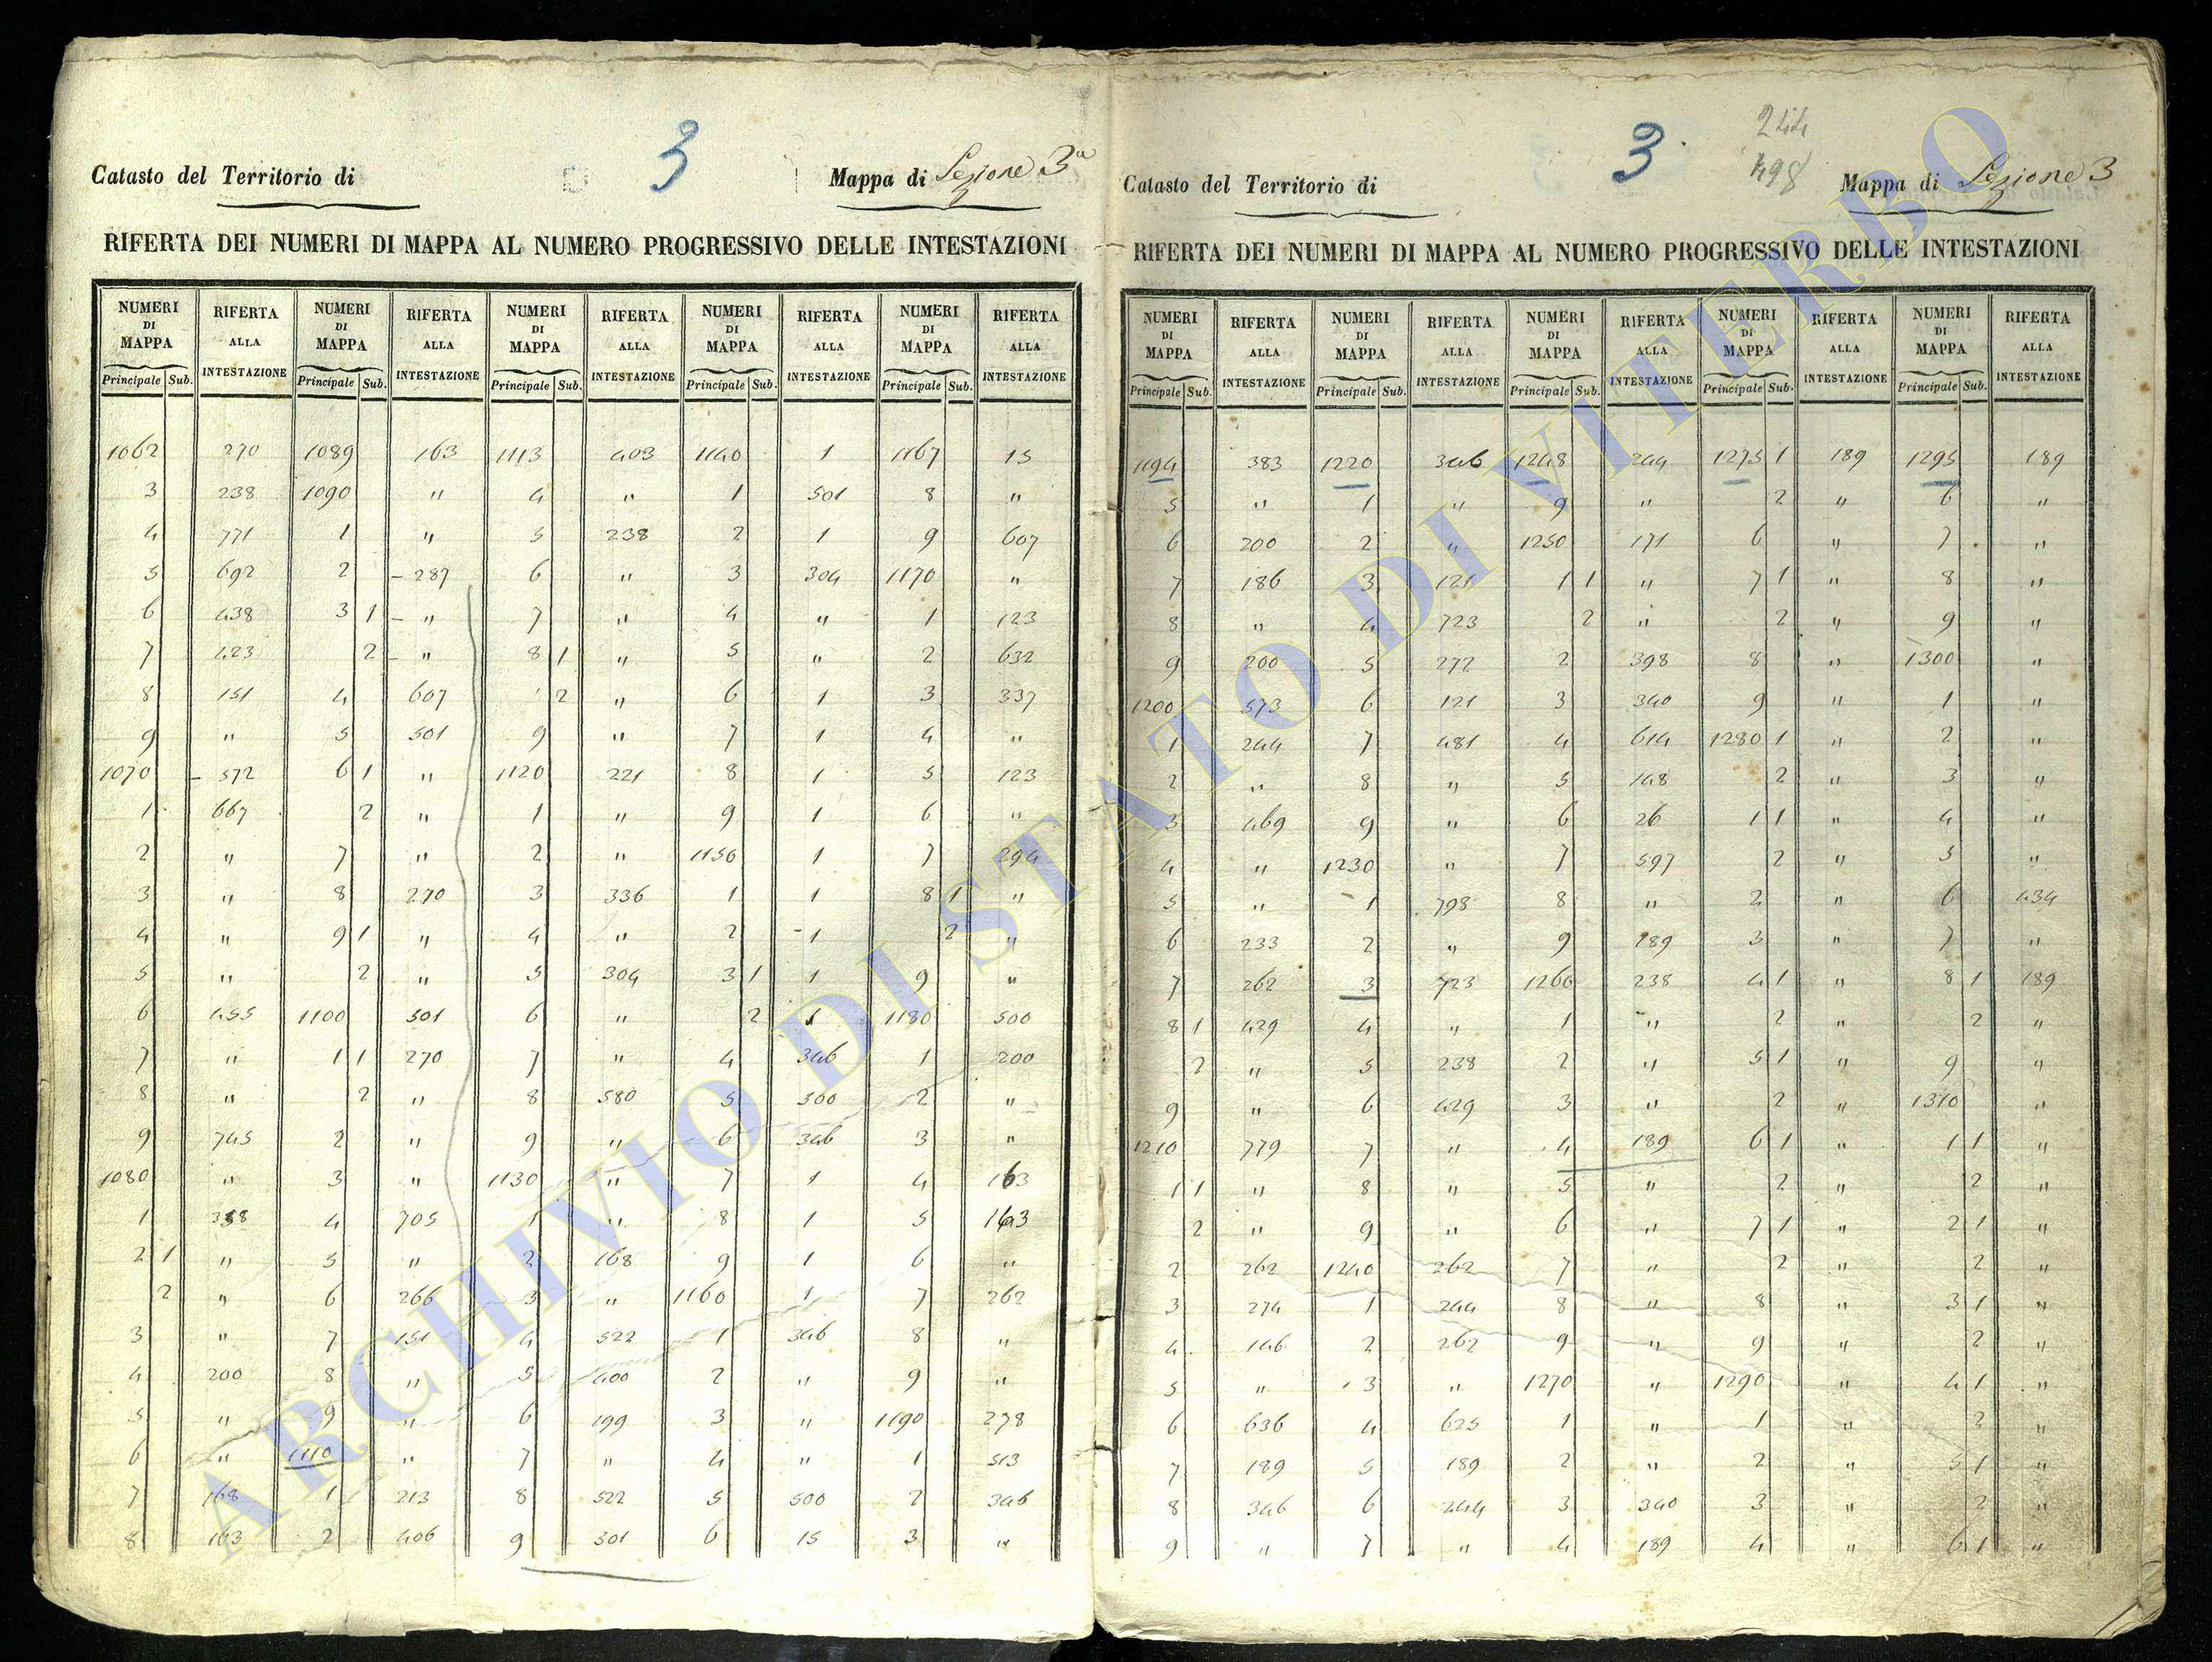 3
Catasto del Territorio di
Mappa di Sezione 3a
RIFERTA DEI NUMERI DI MAPPA AL NUMERO PROGRESSIVO DELLE INTESTAZIONI
NUMERI DI MAPPA RIFERTA ALLA INTESTAZIONE NUMERI DI MAPPA RIFERTA ALLA INTESTAZIONE NUMERI DI MAPPA RIFERTA ALLA INTESTAZIONE NUMERI DI MAPPA RIFERTA ALLA INTESTAZIONE NUMERI DI MAPPA RIFERTA ALLA INTESTAZIONE
Principale Sub. Principale Sub. Principale Sub. Principale Sub. Principale Sub.
1062 270 1089 163 1113 403 1140 1 1167 15
3 238 1090 " 4 " 1 501 8 "
4 771 1 " 5 238 2 1 9 607
5 692 2 – 287 6 " 3 304 1170 "
6 438 3 1 – " 7 " 4 " 1 123
7 423 2 – " 8 1 " 5 " 2 632
8 151 4 607 2 " 6 1 3 337
9 " 5 501 9 " 7 1 4 "
1070 – 572 6 1 " 1120 221 8 1 5 123
1 667 2 " 1 " 9 1 6 "
2 " 7 " 2 " 1150 1 7 294
3 " 8 270 3 336 1 1 8 1 "
4 " 9 1 " 4 " 2 – 1 2 "
5 " 2 " 5 304 3 1 1 9 "
6 455 1100 501 6 " 2 1 1180 500
7 " 1 1 270 7 " 4 346 1 200
8 " 2 " 8 580 5 500 2 "
9 745 2 " 9 " 6 346 3 "
1080 " 3 " 1130 " 7 1 4 163
1 4 705 1 " 8 1 5 163
2 1 " 5 " 2 168 9 1 6 "
2 " 6 266 3 " 1160 1 7 262
3 " 7 151 4 522 1 346 8 "
4 200 8 " 5 400 2 " 9 "
5 " 9 " 6 199 3 " 1190 278
6 " 1110 " 7 " 4 " 1 513
7 168 1 213 8 522 5 500 2 346
8 163 2 406 9 501 6 15 3 "
3
244
498
Catasto del Territorio di
Mappa di Sezione 3
RIFERTA DEI NUMERI DI MAPPA AL NUMERO PROGRESSIVO DELLE INTESTAZIONI
NUMERI DI MAPPA RIFERTA ALLA INTESTAZIONE NUMERI DI MAPPA RIFERTA ALLA INTESTAZIONE NUMERI DI MAPPA RIFERTA ALLA INTESTAZIONE NUMERI DI MAPPA RIFERTA ALLA INTESTAZIONE NUMERI DI MAPPA RIFERTA ALLA INTESTAZIONE
Principale Sub. Principale Sub. Principale Sub. Principale Sub. Principale Sub.
1194 383 1220 346 1248 244 1275 1 189 1295 189
5 " 1 " 9 " 2 " 6 "
6 200 2 " 1250 171 6 " 7 "
7 186 3 121 1 1 " 7 1 " 8 "
8 " 4 723 2 " 2 " 9 "
9 200 5 272 2 398 8 " 1300 "
1200 573 6 121 3 340 9 " 1 "
1 244 7 481 4 614 1280 1 " 2 "
2 " 8 " 5 148 2 " 3 "
3 469 9 " 6 26 1 1 " 4 "
4 " 1230 " 7 597 2 " 5 "
5 " 1 798 8 " 2 " 6 434
6 233 2 " 9 189 3 " 7 "
7 262 3 723 1260 238 4 1 " 8 1 189
8 1 429 4 " 1 " 2 " 2 "
2 " 5 238 2 " 5 1 " 9 "
9 " 6 429 3 " 2 " 1310 "
1210 779 7 " 4 189 6 1 " 1 1 "
1 1 " 8 " 5 " 2 " 2 "
2 " 9 " 6 " 7 1 " 2 1 "
2 262 1240 262 7 " 2 " 2 "
3 274 1 244 8 " 8 " 3 1 "
4 146 2 262 9 " 9 " 2 "
5 " 3 " 1270 " 1290 " 4 1 "
6 636 4 625 1 " 1 " 2 "
7 189 5 189 2 " 2 " 5 1 "
8 346 6 244 3 340 3 " 2 "
9 " 7 " 4 189 4 " 6 1 "
ARCHIVIO DI STATO DI VITERBO